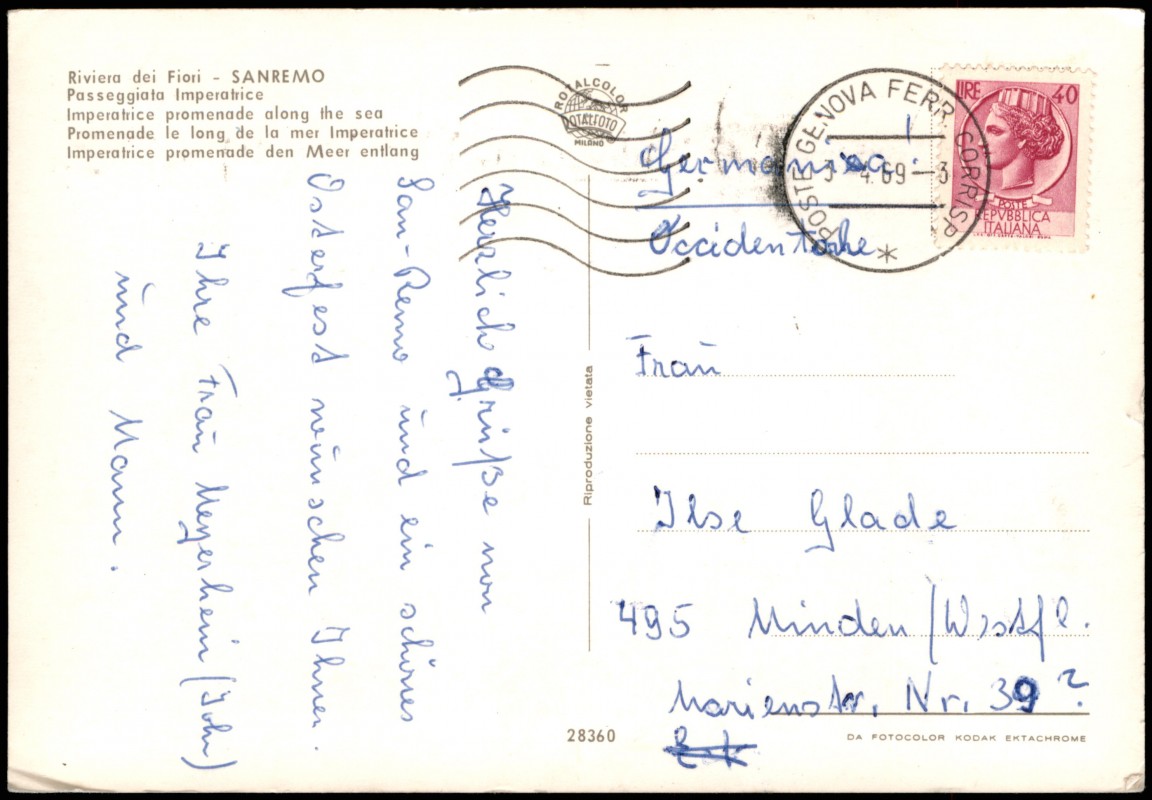 Riviera dei Fiori - SANREMO
Passeggiata Imperatrice
Imperatrice promenade along the sea
Promenade le long de la mer Imperatrice
Imperatrice promenade den Meer entlang
Herzliche Grüße von
San-Remo und ein schönes
Osterfest wünschen Ihnen
Ihre Frau Meyerheim (John)
und Mann.
ROTALCOLOR
ROTALFOTO
MILANO
Riproduzione vietata
28360
POSTE GENOVA FERR. CORRISP.
3-4.69-3
LIRE 40
POSTE
REPVBBLICA
ITALIANA
Germania!
Occidentale
Frau
Ilse Glade
495 Minden/Westfl.
Marienstr. Nr. 39?
DA FOTOCOLOR KODAK EKTACHROME